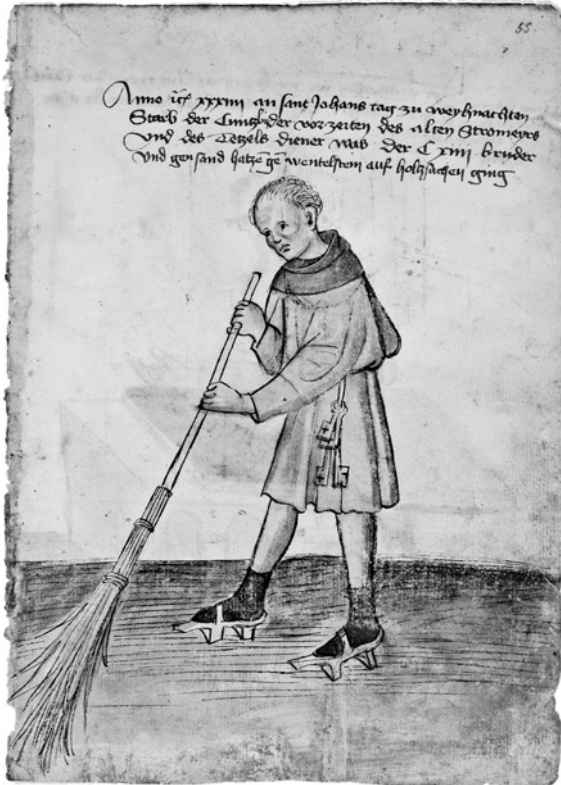 55
Anno iiijc xxxiiii an sant Johans tag zu weyhnachten
Starb der Cuntz der vor zeiten des alten Stromeyrs
Und des Tetzels diener was der C xiiii bruder
Und gen sand hatze gē wentelstein auf holtzschen ging